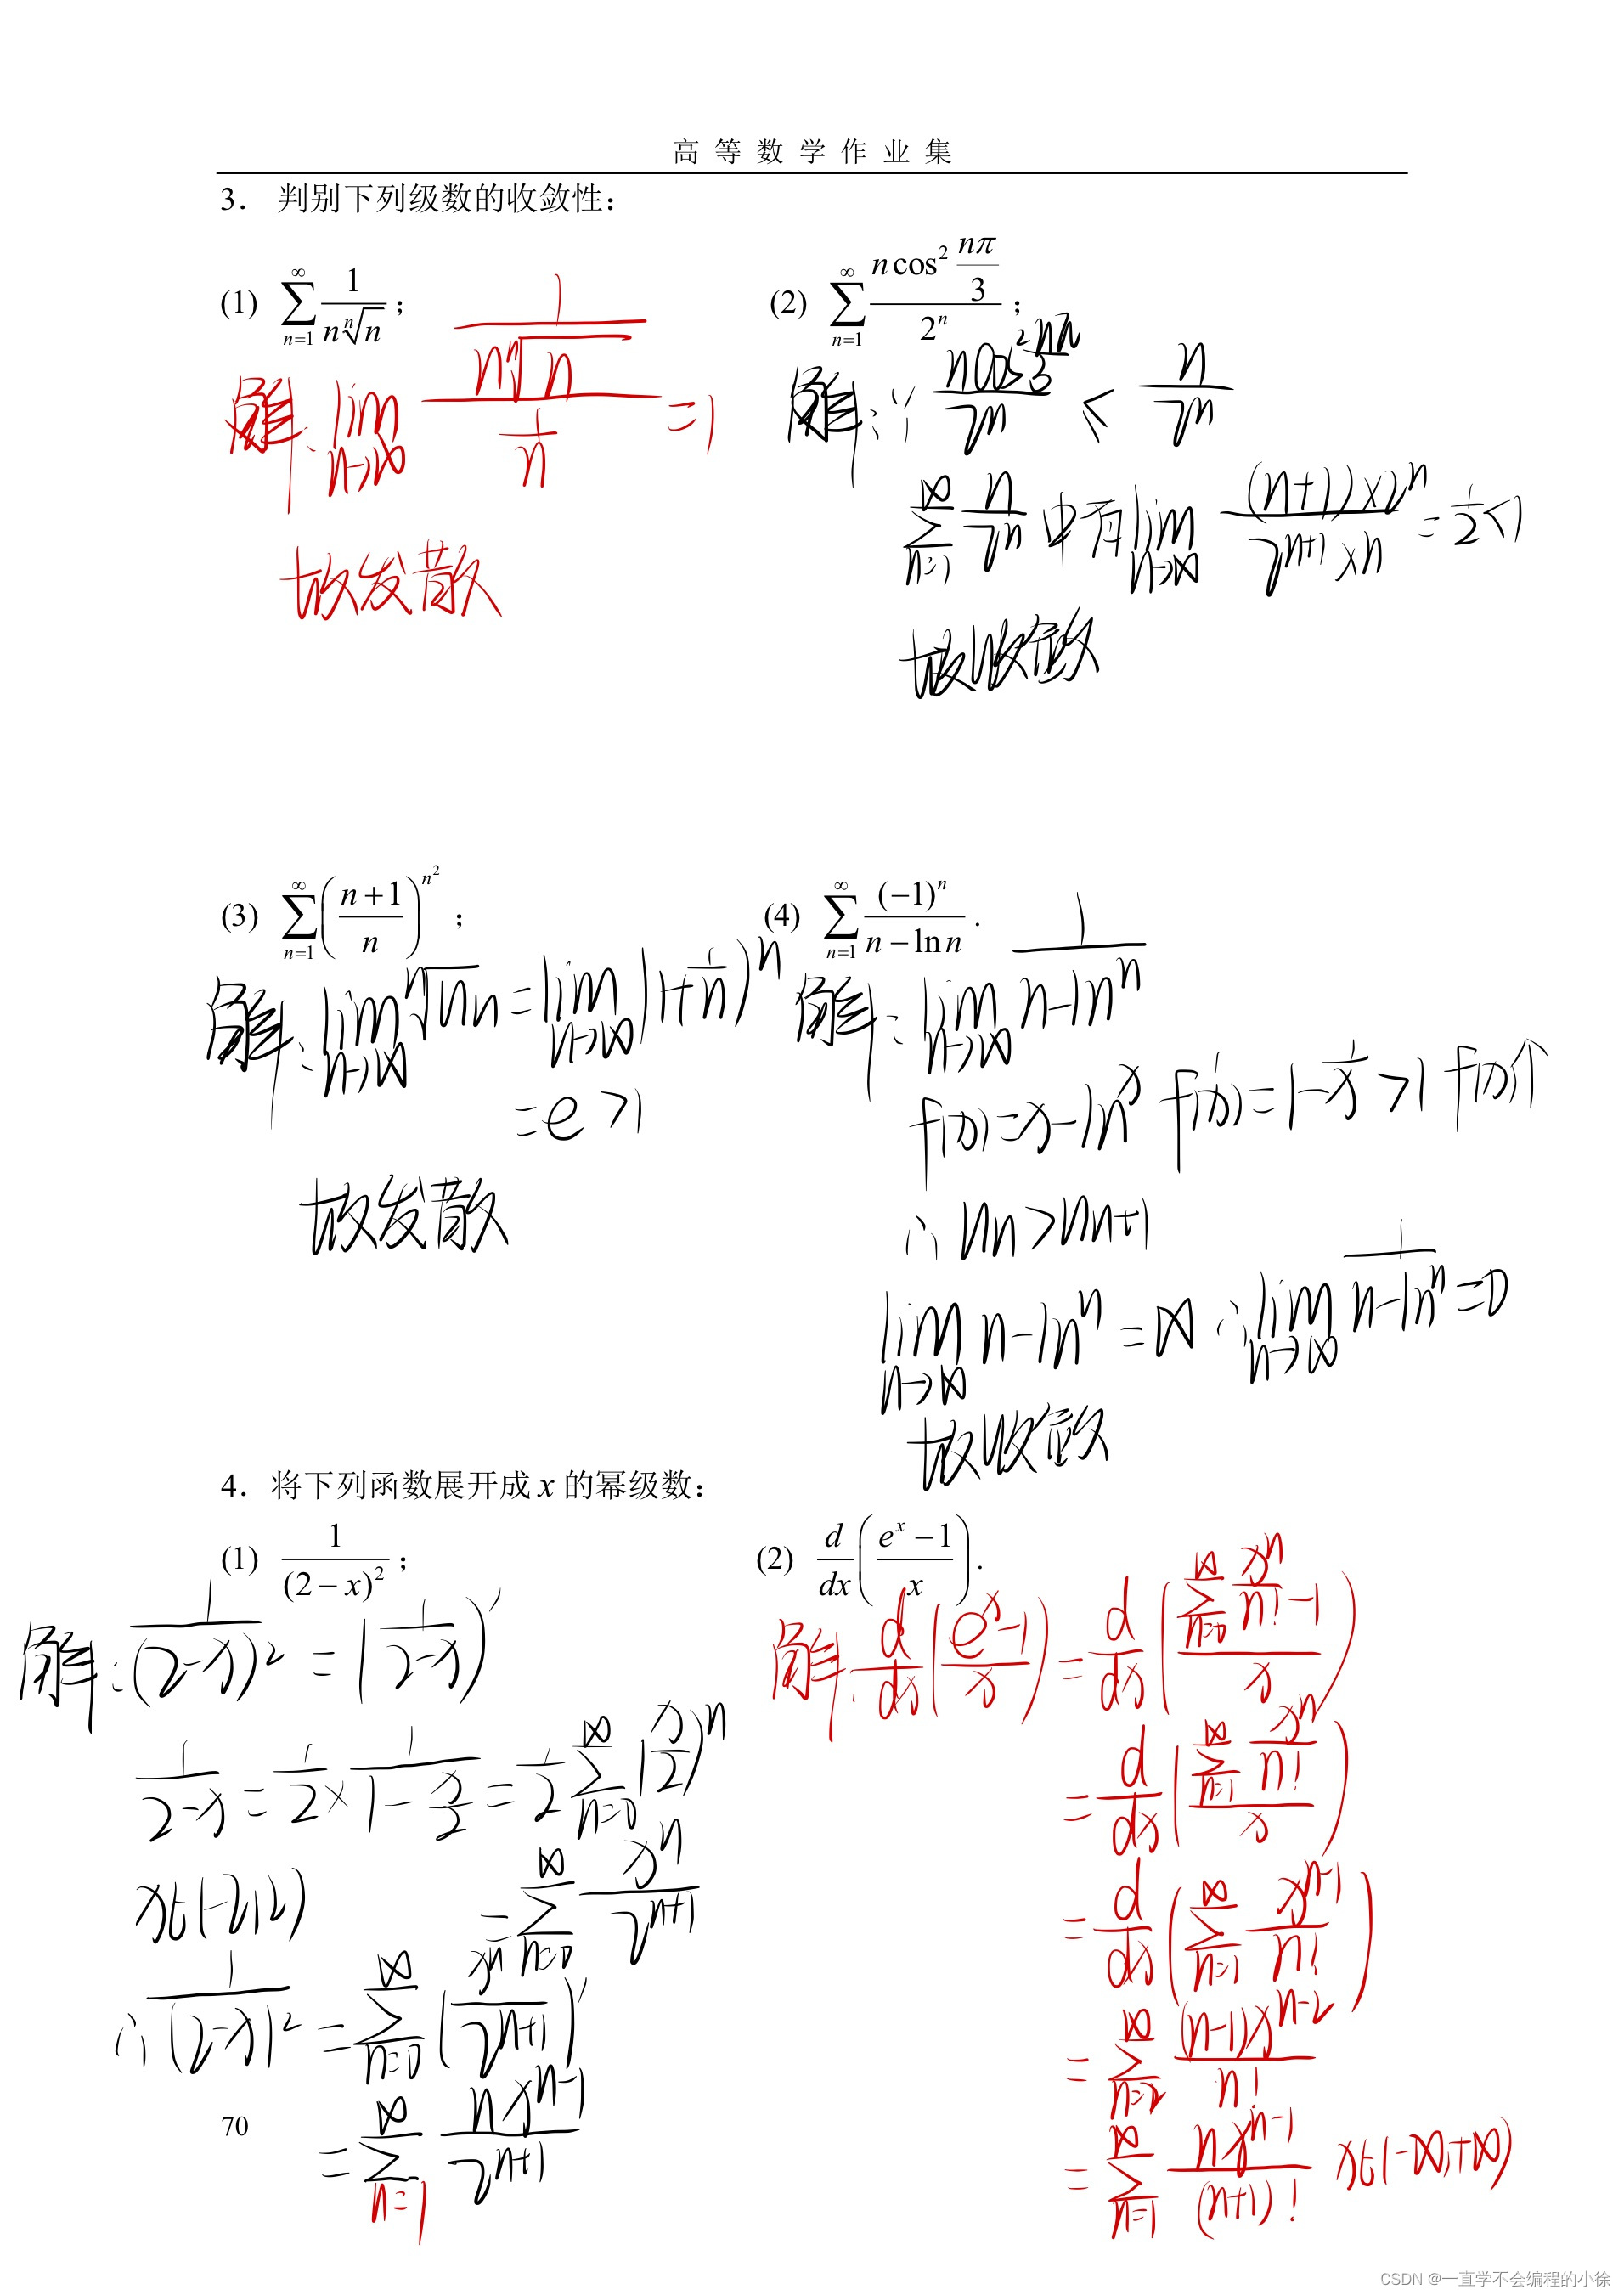 高等数学作业集
3. 判别下列级数的收敛性:
(1) $\sum_{n=1}^{\infty}\frac{1}{n\sqrt[n]{n}}$;
解: $\lim_{n\to\infty}\frac{\frac{1}{n\sqrt[n]{n}}}{\frac{1}{n}}=1$
故发散
(2) $\sum_{n=1}^{\infty}\frac{n\cos^2\frac{n\pi}{3}}{2^n}$;
解: ∵ $\frac{n\cos^2\frac{n\pi}{3}}{2^n}\leq\frac{n}{2^n}$
$\sum_{n=1}^{\infty}\frac{n}{2^n}$ 中有 $\lim_{n\to\infty}\frac{(n+1)\times 2^n}{2^{n+1}\times n}=\frac{1}{2}<1$
故收敛
(3) $\sum_{n=1}^{\infty}\left(\frac{n+1}{n}\right)^{n^2}$;
解: $\lim_{n\to\infty}\sqrt[n]{u_n}=\lim_{n\to\infty}(1+\frac{1}{n})^n$
$=e>1$
故发散
(4) $\sum_{n=1}^{\infty}\frac{(-1)^n}{n-\ln n}$.
解: $\lim_{n\to\infty}\frac{1}{n-\ln^n}$
$f(x)=x-\ln^x$ $f'(x)=1-\frac{1}{x}>1$ $f(x)$↑
∴ $u_n>u_{n+1}$
$\lim_{n\to\infty}n-\ln^n=\infty$ ∴ $\lim_{n\to\infty}\frac{1}{n-\ln^n}=0$
故收敛
4. 将下列函数展开成 x 的幂级数:
(1) $\frac{1}{(2-x)^2}$;
解: $\frac{1}{(2-x)^2}=(\frac{1}{2-x})'$
$\frac{1}{2-x}=\frac{1}{2}\times\frac{1}{1-\frac{x}{2}}=\frac{1}{2}\sum_{n=0}^{\infty}(\frac{x}{2})^n$
$x\in(-2,2)$ $=\sum_{n=0}^{\infty}\frac{x^n}{2^{n+1}}$
∴ $\frac{1}{(2-x)^2}=\sum_{n=0}^{\infty}(\frac{x^n}{2^{n+1}})'$
$=\sum_{n=1}^{\infty}\frac{nx^{n-1}}{2^{n+1}}$
(2) $\frac{d}{dx}\left(\frac{e^x-1}{x}\right)$.
解: $\frac{d}{dx}(\frac{e^x-1}{x})=\frac{d}{dx}\left(\frac{\sum_{n=0}^{\infty}\frac{x^n}{n!}-1}{x}\right)$
$=\frac{d}{dx}\left(\frac{\sum_{n=1}^{\infty}\frac{x^n}{n!}}{x}\right)$
$=\frac{d}{dx}\left(\sum_{n=1}^{\infty}\frac{x^{n-1}}{n!}\right)$
$=\sum_{n=2}^{\infty}\frac{(n-1)x^{n-2}}{n!}$
$=\sum_{n=1}^{\infty}\frac{nx^{n-1}}{(n+1)!}$ $x\in(-\infty,+\infty)$
70
CSDN @一直学不会编程的小徐